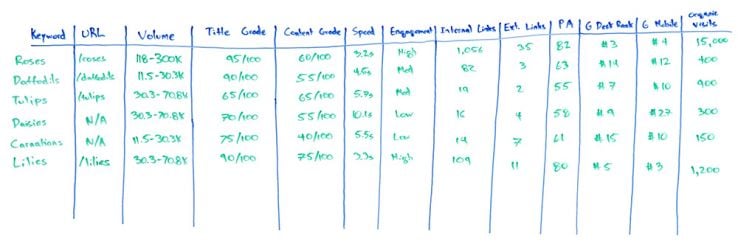 Keyword URL Volume Title Grade Content Grade Speed Engagement Internal Links Ext. Links PA G Desk Rank G Mobile Organic Visits
Roses /roses 118-300K 95/100 60/100 3.2s High 1,056 35 82 #3 #4 15,000
Daffodils /daffodils 11.5-30.3K 90/100 55/100 4.6s Med 82 3 63 #14 #12 400
Tulips /tulips 30.3-70.8K 65/100 65/100 5.7s Med 19 2 55 #7 #10 900
Daisies N/A 30.3-70.8K 70/100 55/100 10.1s Low 16 4 58 #9 #27 300
Carnations N/A 11.5-30.3K 75/100 40/100 5.5s Low 14 7 61 #15 #10 150
Lilies /lilies 30.3-70.8K 90/100 75/100 High 109 11 80 #5 #3 1,200